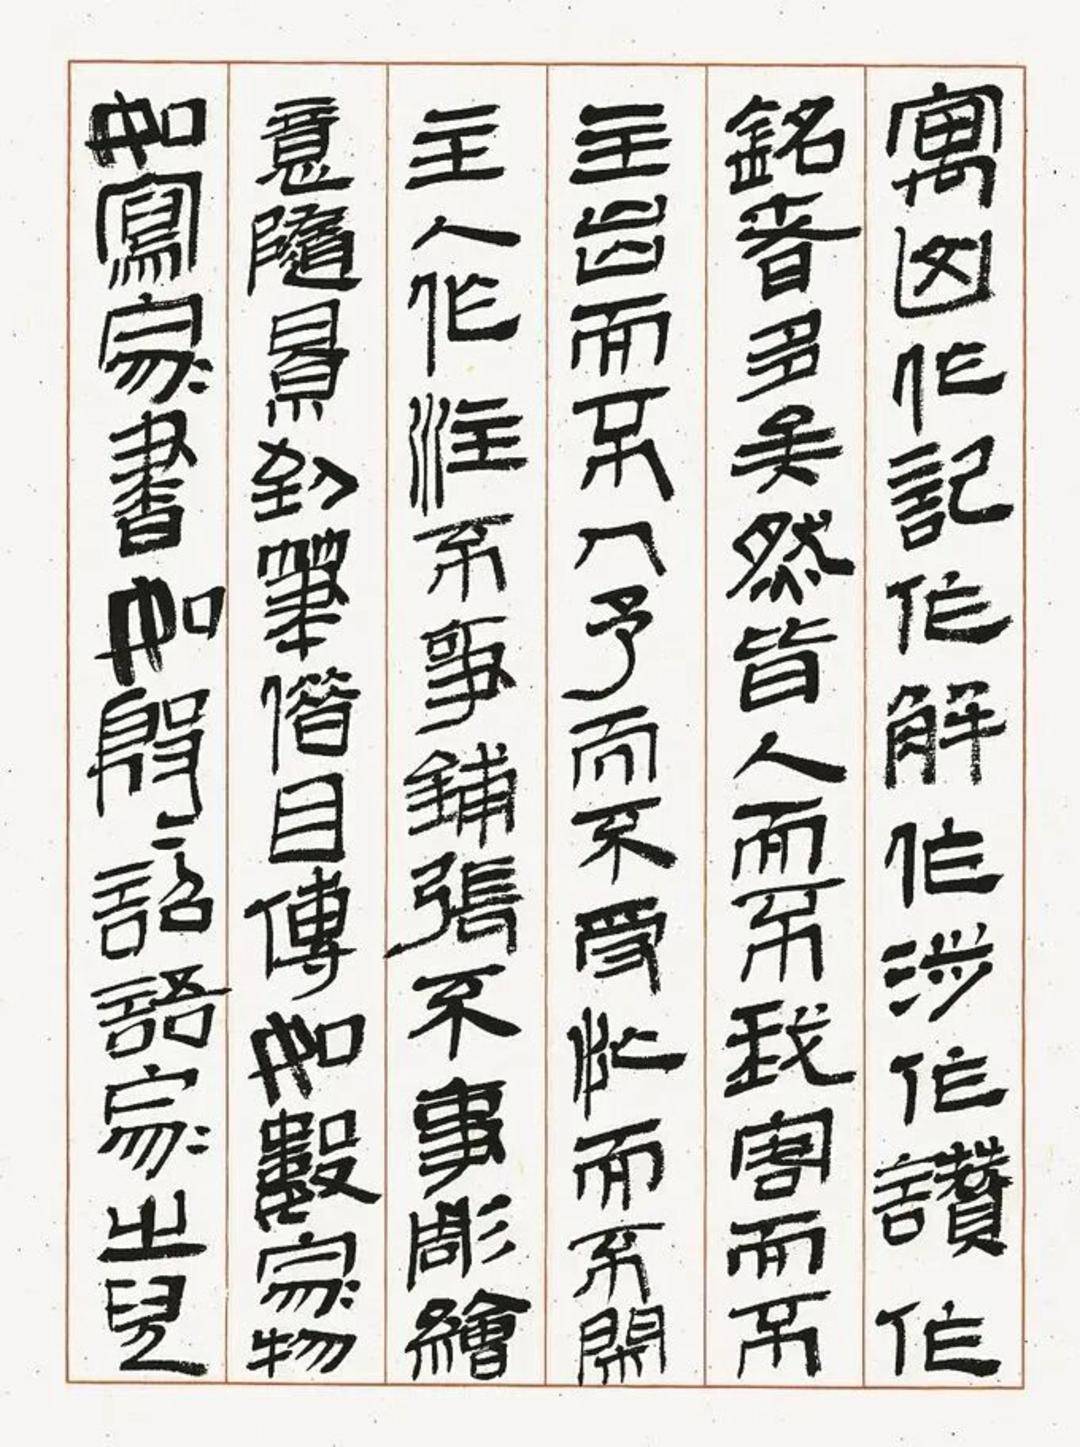 寓作記作解作涉作讚作
銘者多矣然皆人而不我客而不
主出而不入予而不受忙而不閑
主人作注不事鋪張不事彫繪
意隨景到筆借目傳如數家物
如寫家書如殷々詔語家之兒